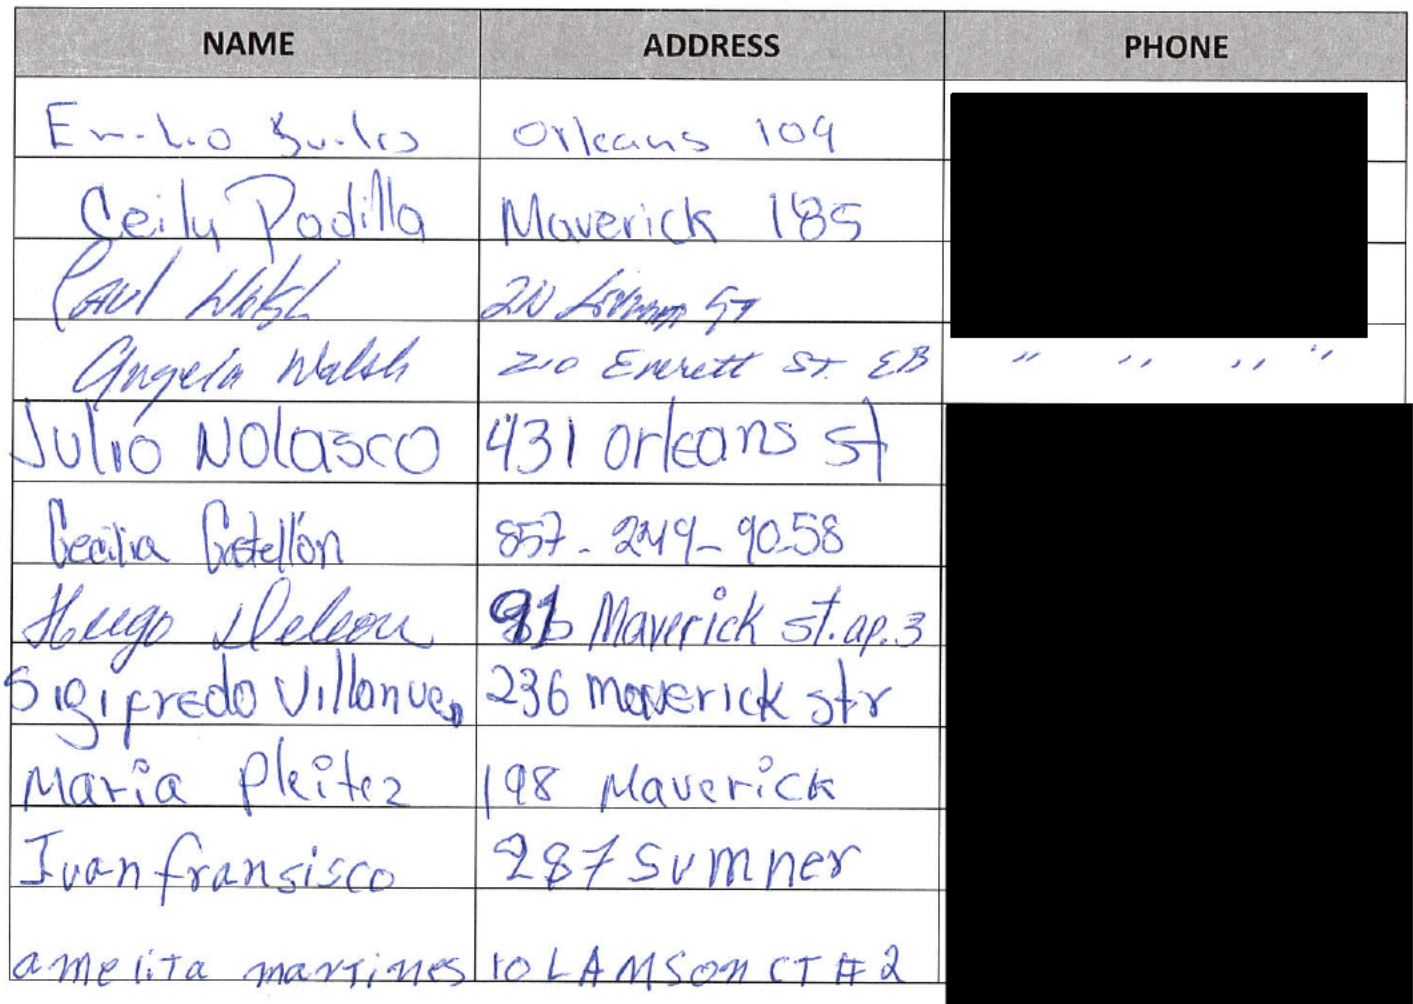 NAME ADDRESS PHONE
Emilio Orleans 109
Ceily Padilla Maverick 185
Paul Walsh St
Angela Walsh 210 Everett ST. EB " " " "
Julio Nolasco 431 orleans st
Cecilia 857-249-9058
Hugo Deleon 91 Maverick st. ap. 3
Sigifredo Villanueva 236 maverick str
Maria Pleitez 198 Maverick
Juan fransisco 287 Sumner
amelita martines 10 LAMSON CT # 2